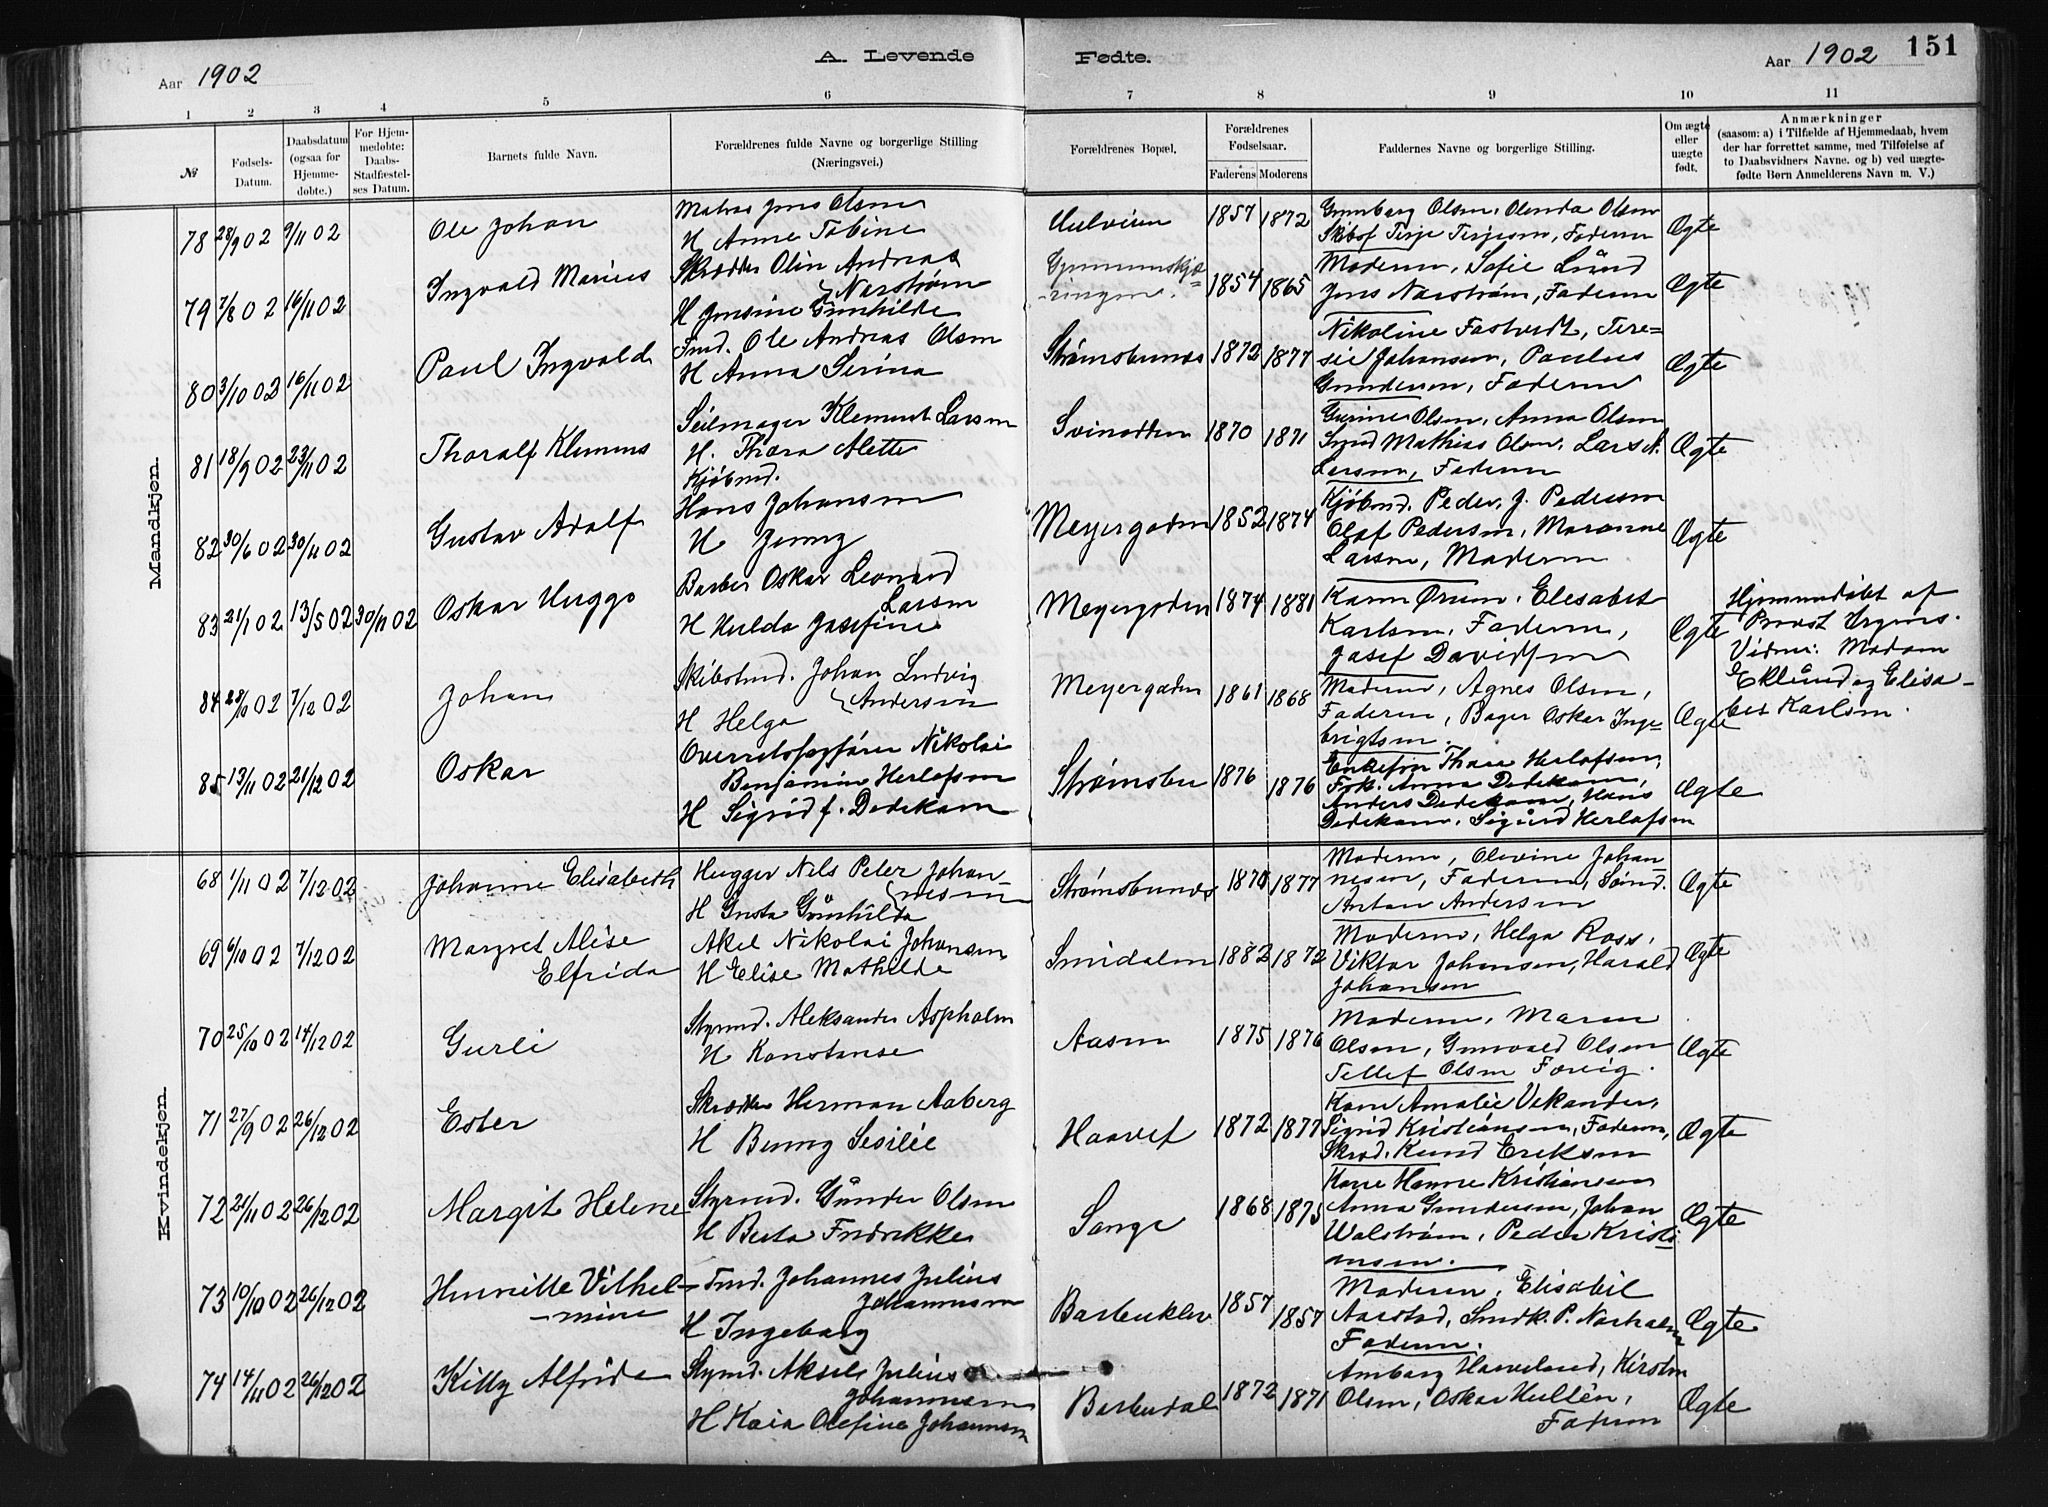 Aar 1902
A. Levende Fødte.
Aar 1902 151
1 2 3 4 5 6 7 8 9 10 11
№
Fødsels-
Datum.
Daabsdatum
(ogsaa for
Hjemme-
døbte.)
For Hjem-
medøbte:
Daabs-
Stadfæstel-
ses Datum.
Barnets fulde Navn.
Forældrenes fulde Navne og borgerlige Stilling
(Næringsvei.)
Forældrenes Bopæl.
Forældrenes
Fødselsaar.
Faderens Moderens
Faddernes Navne og borgerlige Stilling.
Om ægte
eller
uægte
født.
Anmærkninger
(saasom: a) i Tilfælde af Hjemmedaab, hvem
der har forrettet samme, med Tilføielse af
to Daabsvidners Navne. og b) ved uægte-
fødte Børn Anmelderens Navn m. V.)
Mandkjøn.
78 28/9 02 9/11 02 Ole Johan
Matros Jens Olsen
H Anne Tobine
1857 1872
Gunborg Olsen, Olenda Olsen
Skibsf Terje Terjesen, Faderen
Ægte
79 7/8 02 16/11 02 Ingvald Marius
Skrædder Olin Andreas
Narstrøm
H Jensine Gunhilde
1854 1865
Moderen, Sofie Lund
Jens Narstrøm, Faderen
Ægte
80 3/10 02 16/11 02 Paul Ingvald
Tmd. Ole Andreas Olsen
H Anna Serina
Strømsbunes 1872 1877
Nikoline Fastvedt, Tere-
sie Johansen, Paulus
Gundersen, Faderen
Ægte
81 18/9 02 23/11 02 Thoralf Klemens
Seilmager Klement Larsen
H. Thora Alette
Svinodden 1870 1871
Gurine Olsen, Anna Olsen
Smed Mathias Olsen, Lars A.
Larsen, Faderen
Ægte
82 30/6 02 30/11 02 Gustav Adolf
Kjøbmd.
Hans Johansen
H Jenny
Meyergaden 1852 1874
Kjøbmd. Peder J. Pedersen
Olaf Pedersen, Maranne
Larsen, Moderen
Ægte
83 21/1 02 13/5 02 30/11 02 Oskar Verggo
Barber Oskar Leonard
Larsen
H Hulda Josefine
Meyergaden 1874 1881
Karen Ørum, Elesabet
Karlsen, Faderen,
Josef Davidsen
Ægte
Hjemmedøbt af
Provst
Vidner: Madam
Eklund og Elisa-
bet Karlsen.
84 28/10 02 7/12 02 Johan
Skibstmd. Johan Ludvig
Andersen
H Helga
Meyergaden 1861 1868
Moderen, Agnes Olsen,
Faderen, Bager Oskar Inge-
brigtsen.
Ægte
85 13/11 02 21/12 02 Oskar
Overretssagfører Nikolai
Benjamin Herlofsen
H Sigrid f. Dedekam
Strømsbu 1876 1876
Enkefru Thora Herlofsen,
Frk. Anna Dedekam,
Anders Dedekam, Hans
Dedekam, Sigurd Herlofsen
Ægte
Kvindekjøn.
68 1/11 02 7/12 02 Johanne Elisabeth
Hugger Nils Peter Johan-
nesen
H Gusta Gunhilda
Strømsbunes 1870 1877
Moderen, Olevine Johan-
nesen, Faderen,
Anton Andersen
Ægte
69 6/10 02 7/12 02 Margret Alise
Elfrida
Aksel Nikolai Johansen
H Elise Mathilde
Smidalen 1882 1872
Moderen, Helga Ross,
Viktor Johansen, Harald
Johansen
Ægte
70 25/10 02 14/12 02 Gurli
Styrmd. Aleksander Aspholm
H Konstanse
Aasen 1875 1876
Moderen, Maren
Olsen, Gunvald Olsen
Tellef Olsen Førvig.
Ægte
71 27/9 02 26/12 02 Ester
Skrædder Herman Aaberg
H Benny Sesilie
Haavet 1872 1877
Kone Amalie Vikander,
Sigrid Kristiansen, Faderen,
Skræd. Knud Eriksen
Ægte
72 21/11 02 26/12 02 Margit Helene
Styrmd. Gunder Olsen
H Berta Fredrikke
Songe 1868 1875
Kone Hanne Kristiansen
Anna Gundersen, Johan
Walstrøm, Peder Kristi-
ansen.
Ægte
73 10/10 02 26/12 02 Henriette Vilhel-
mine
Tmd. Johannes Julius
Johannesen
H Ingeborg
Barbuklev 1857 1857
Moderen, Elisabet
Aarstad, Smdk. P. Narholm
Faderen.
Ægte
74 14/11 02 26/12 02 Kitty Alfride
Styrmd. Aksels Julius
Johannesen
H Kaia Olefine Johannesen
Barbudal 1872 1871
Amborg Haaveland, Kirsten
Olsen, Oskar Hulten,
Faderen
Ægte